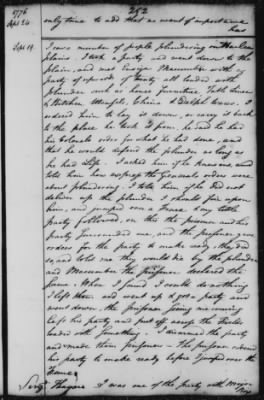 1776 252
Sept 24 only time to add that as want of experience
has
Sept 19 I saw a number of people plundering on Harlem
plains. I took a party and went down to the
plain, and met Ensign Macumber with a
party of upwards of twenty all loaded with
plunder such as house furniture, Table Linnen
& Kitchen Utensils, China & Delph ware. I
ordered him to lay it down, or carry it back
to the place he took it from, he said he had
his Colonels order for what he had done, and
that he would defend the plunder as long as
he had Life. I asked him if he knew, and
told him how express the Generals orders were
about plundering. I told him if he did not
deliver up the plunder I should fall upon
him, and jumped over a fence, my little
party followed, on this the prisoner and his
party surrounded me, and the prisoner gave
orders for the party to make ready, they did
so, and told me they would die by the plunder
and Macumber the prisoner declared the
same. When I found I could do nothing
I left them and went up & got a party and
went down, the prisoner seeing me coming
left his party and put off across the Fields
loaded with something. I disarmed the party
and made them prisoners. The prisoner ordered
his party to make ready before I jumped over the
Fence.
Sergt Thayer I was one of the party with Major